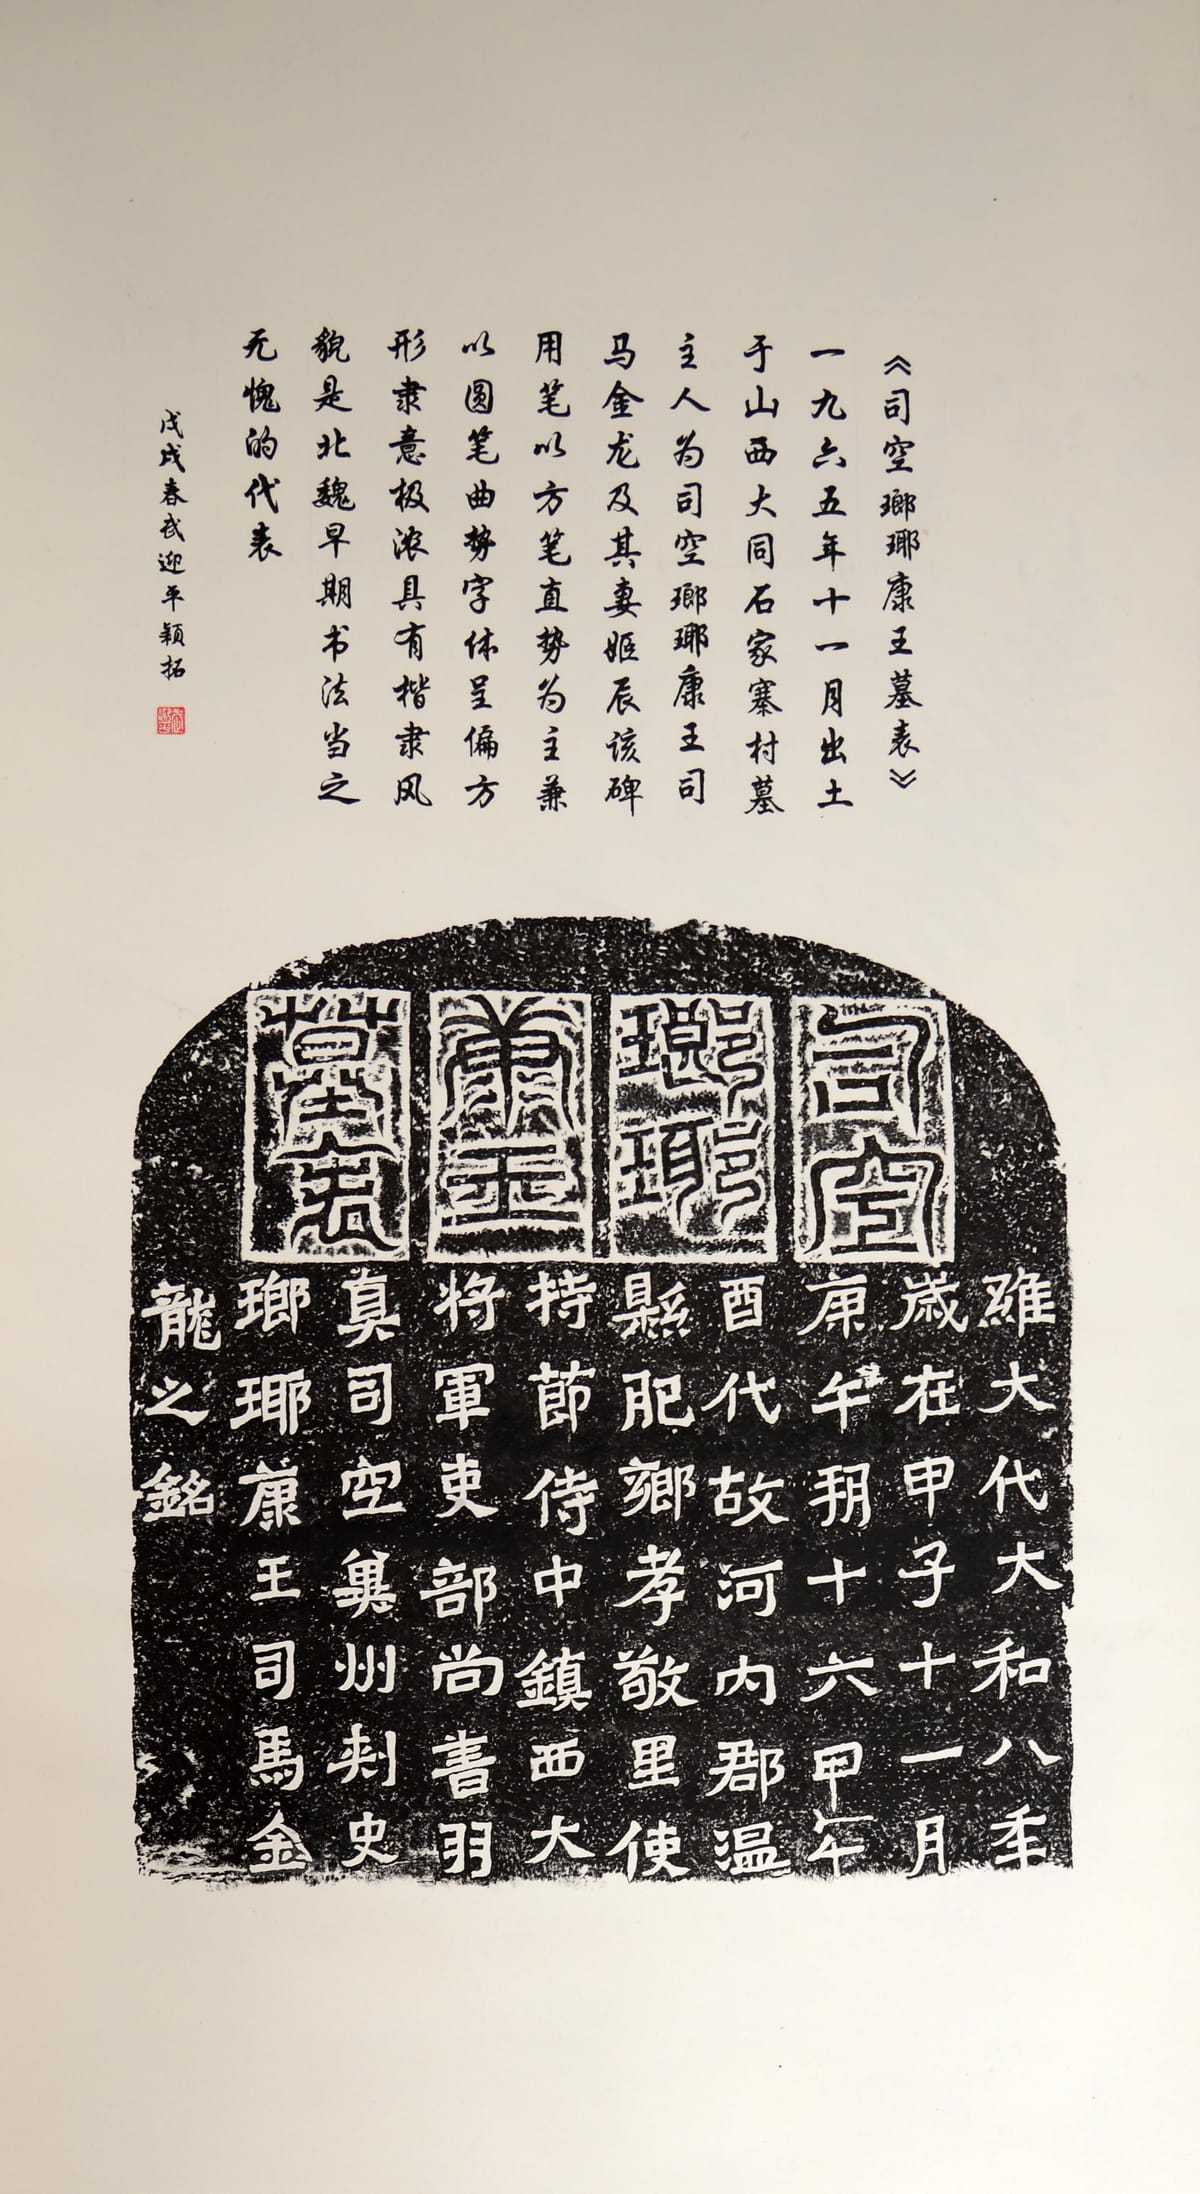 《司空瑯琊康王墓表》
一九六五年十一月出土
于山西大同石家寨村墓
主人为司空瑯琊康王司
马金龙及其妻姬辰该碑
用笔以方笔直势为主兼
以圆笔曲势字体呈偏方
形隶意极浓具有楷隶风
貌是北魏早期书法当之
无愧的代表
戊戌春武迎平颖拓
司空
瑯琊
康王
墓表
維大代大和八年
歲在甲子十一月
庚午朔十六甲午
酉代故河内郡温
縣肥鄉孝敬里使
持節侍中鎮西大
將軍吏部尚書羽
真司空冀州刺史
瑯琊康王司馬金
龍之銘